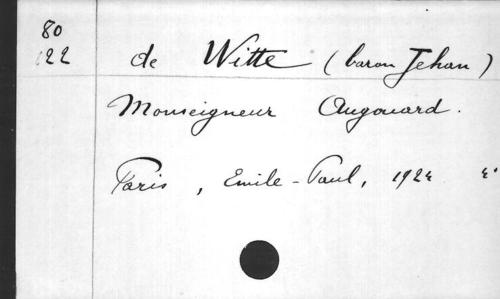 80
122
de Witte (baron Jehan)
Monseigneur Augouard.
Paris, Emile-Paul, 1924 4°